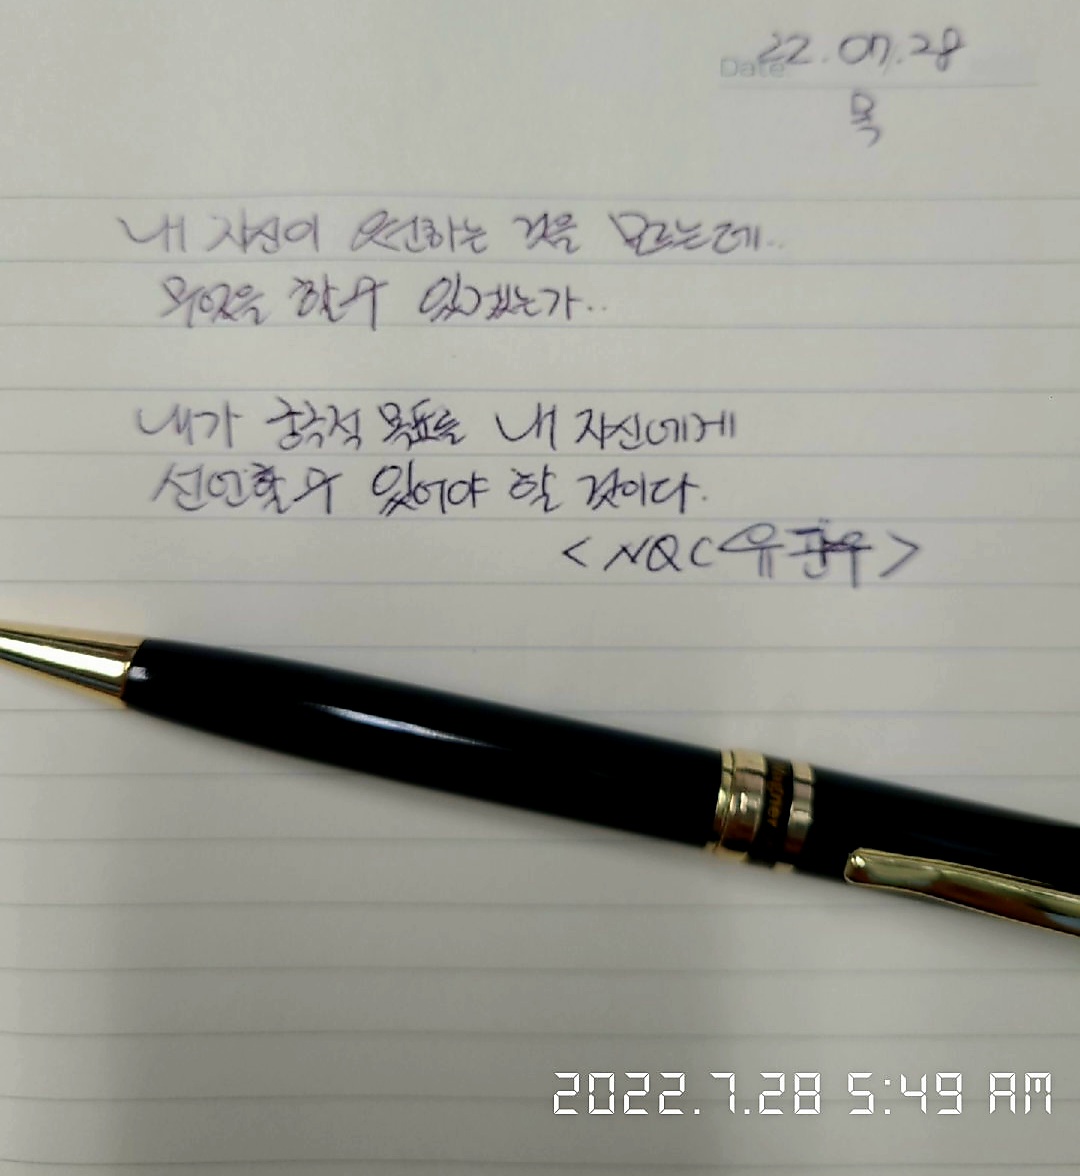 Date 22.07.28
목
내 자신이 운전하는 것을 모르는데..
무엇을 할 수 있겠는가..
내가 궁극적 목표를 내 자신에게
선언할 수 있어야 할 것이다.
< NQC 유 >
2022.7.28 5:49 AM